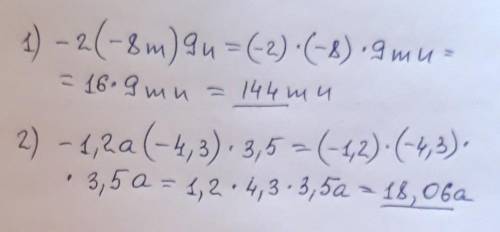 1) -2(-8m)9n = (-2)·(-8)·9mn =
= 16·9mn = 144mn
2) -1,2a(-4,3)·3,5 = (-1,2)·(-4,3)·
· 3,5a = 1,2·4,3·3,5a = 18,06a